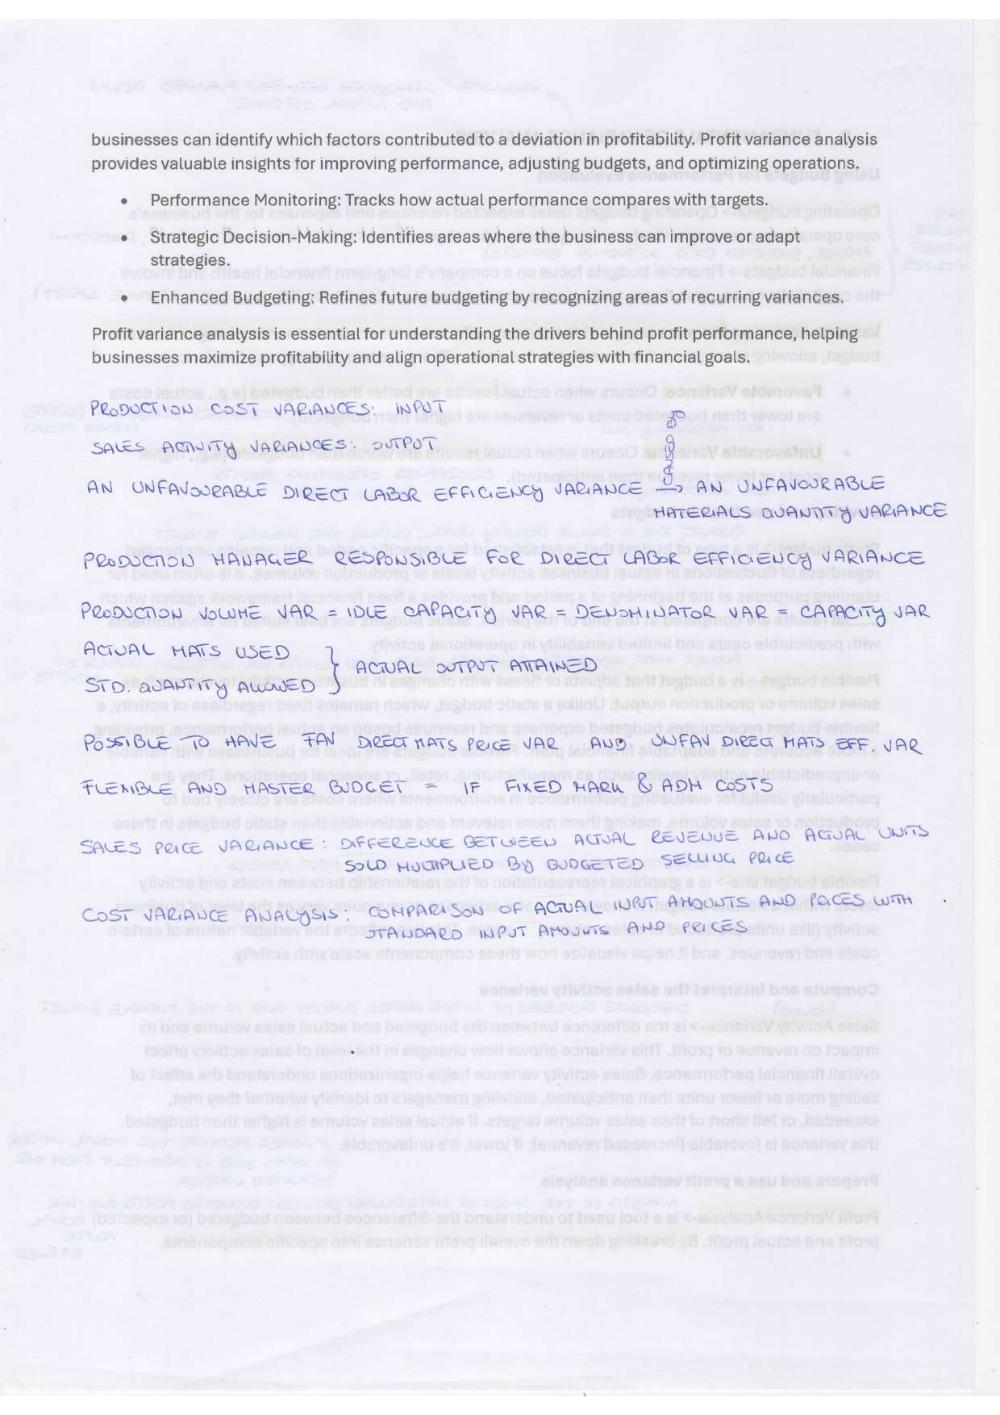 businesses can identify which factors contributed to a deviation in profitability. Profit variance analysis
provides valuable insights for improving performance, adjusting budgets, and optimizing operations.
• Performance Monitoring: Tracks how actual performance compares with targets.
• Strategic Decision-Making: Identifies areas where the business can improve or adapt
strategies.
• Enhanced Budgeting: Refines future budgeting by recognizing areas of recurring variances.
Profit variance analysis is essential for understanding the drivers behind profit performance, helping
businesses maximize profitability and align operational strategies with financial goals.
PRODUCTION COST VARIANCES: INPUT
SALES ACTIVITY VARIANCES: OUTPUT
AN UNFAVOURABLE DIRECT LABOR EFFICIENCY VARIANCE → AN UNFAVOURABLE
MATERIALS QUANTITY VARIANCE
PRODUCTION MANAGER RESPONSIBLE FOR DIRECT LABOR EFFICIENCY VARIANCE
PRODUCTION VOLUME VAR = IDLE CAPACITY VAR = DENOMINATOR VAR = CAPACITY VAR
ACTUAL MATS USED
STD. QUANTITY ALLOWED } ACTUAL OUTPUT ATTAINED
POSSIBLE TO HAVE FAV DIRECT MATS PRICE VAR AND UNFAV DIRECT MATS EFF. VAR
FLEXIBLE AND MASTER BUDGET = IF FIXED MARK & ADM COSTS
SALES PRICE VARIANCE: DIFFERENCE BETWEEN ACTUAL REVENUE AND ACTUAL UNITS
SOLD MULTIPLIED BY BUDGETED SELLING PRICE
COST VARIANCE ANALYSIS: COMPARISON OF ACTUAL INPUT AMOUNTS AND PRICES WITH
STANDARD INPUT AMOUNTS AND PRICES